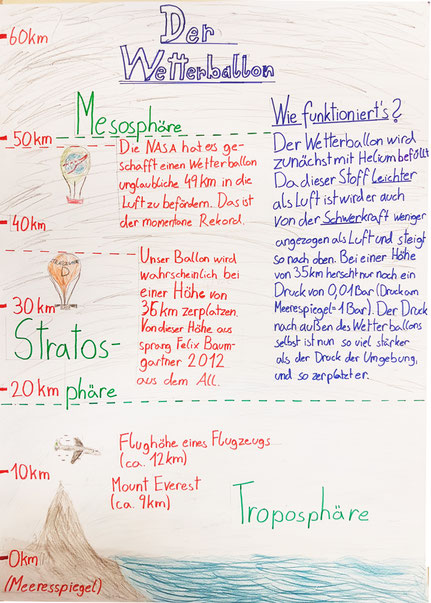 Der
Wetterballon
60km
Mesosphäre
50km
Die NASA hat es ge-
schafft einen Wetterballon
unglaubliche 49km in die
Luft zu befördern. Das ist
der momentane Rekord.
40km
Unser Ballon wird
wahrscheinlich bei
einer Höhe von
36km zerplatzen.
Von dieser Höhe aus
sprang Felix Baum-
gartner 2012
aus dem All.
D
30km
Stratos-
phäre
20km
Wie funktioniert's?
Der Wetterballon wird
zunächst mit Helium befüllt
Da dieser Stoff Leichter
als Luft ist wird er auch
von der Schwerkraft weniger
angezogen als Luft und steigt
so nach oben. Bei einer Höhe
von 35km herscht nur noch ein
Druck von 0,01Bar (Druck am
Meerespiegel=1Bar). Der Druck
nach außen des Wetterballons
selbst ist nun so viel stärker
als der Druck der Umgebung,
und so zerplatzt er.
Flughöhe eines Flugzeugs
(ca. 12km)
10km
Mount Everest
(ca. 9km)
Troposphäre
0km
(Meeresspiegel)